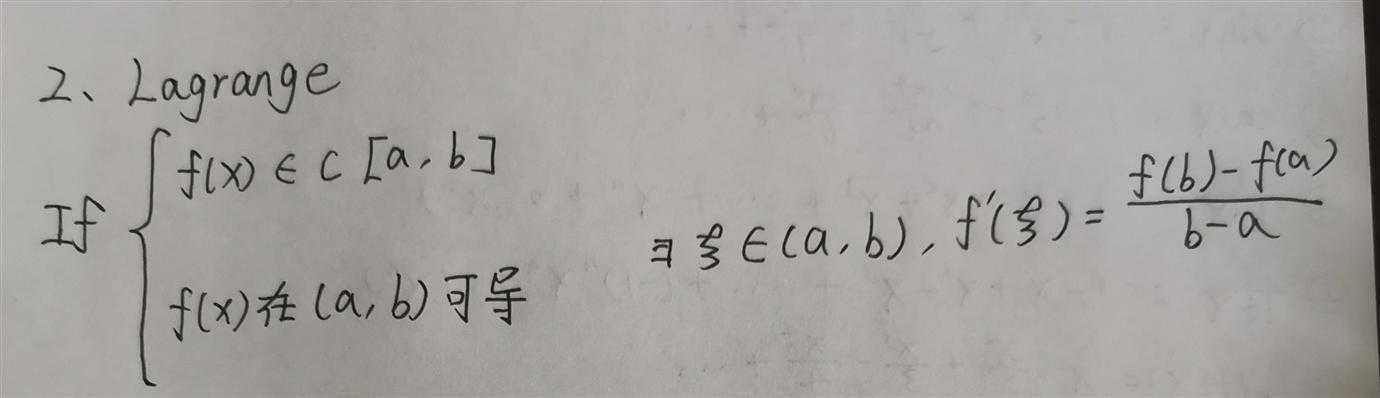 2、Lagrange
If { f(x) ∈ C [a, b]
f(x) 在 (a, b) 可导
∃ ξ ∈ (a, b), f'(ξ) = \frac{f(b)-f(a)}{b-a}